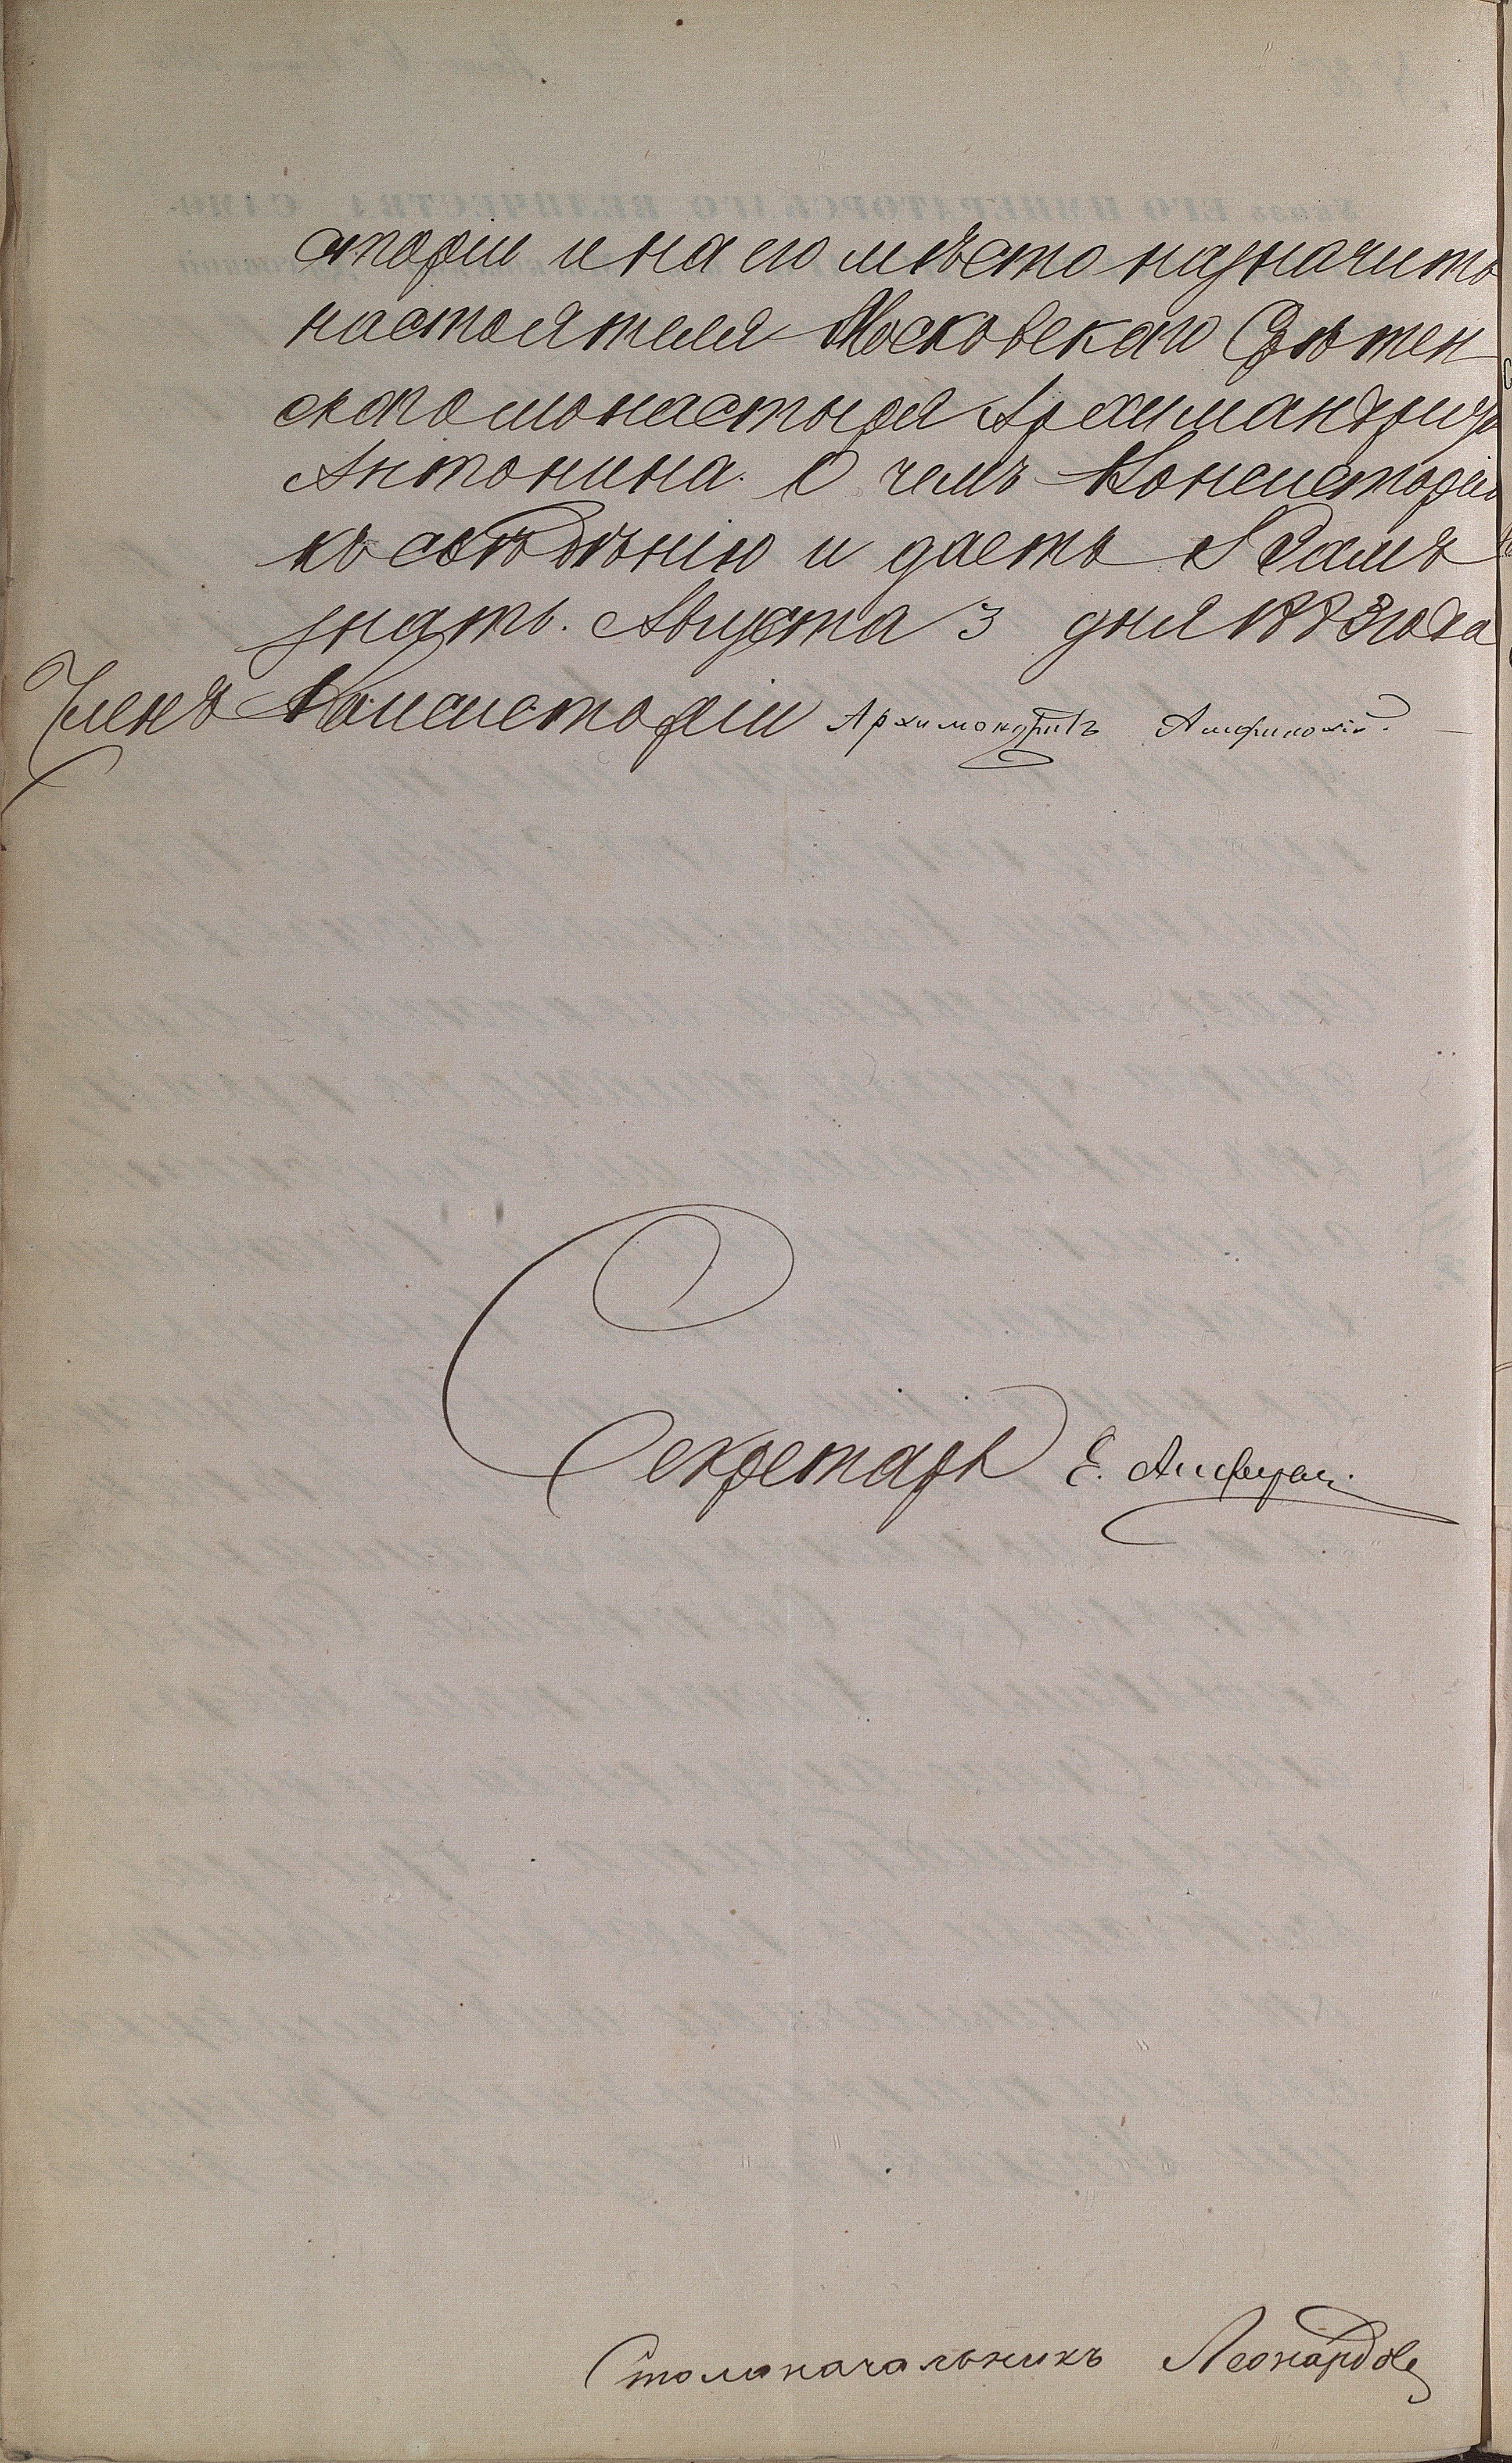 сторіи и на его мѣсто назначить
настоятеля Московскаго Срѣтен
скаго монастыря Архимандрида
Антонина. О чемъ Консисторія
къ свѣдѣнію и даетъ Вамъ
знать. Августа 3 дня 1883 года
Членъ Консисторіи Архимандритъ Амфилохій.
Секретарь Е.
Столоначальникъ Леонардовъ